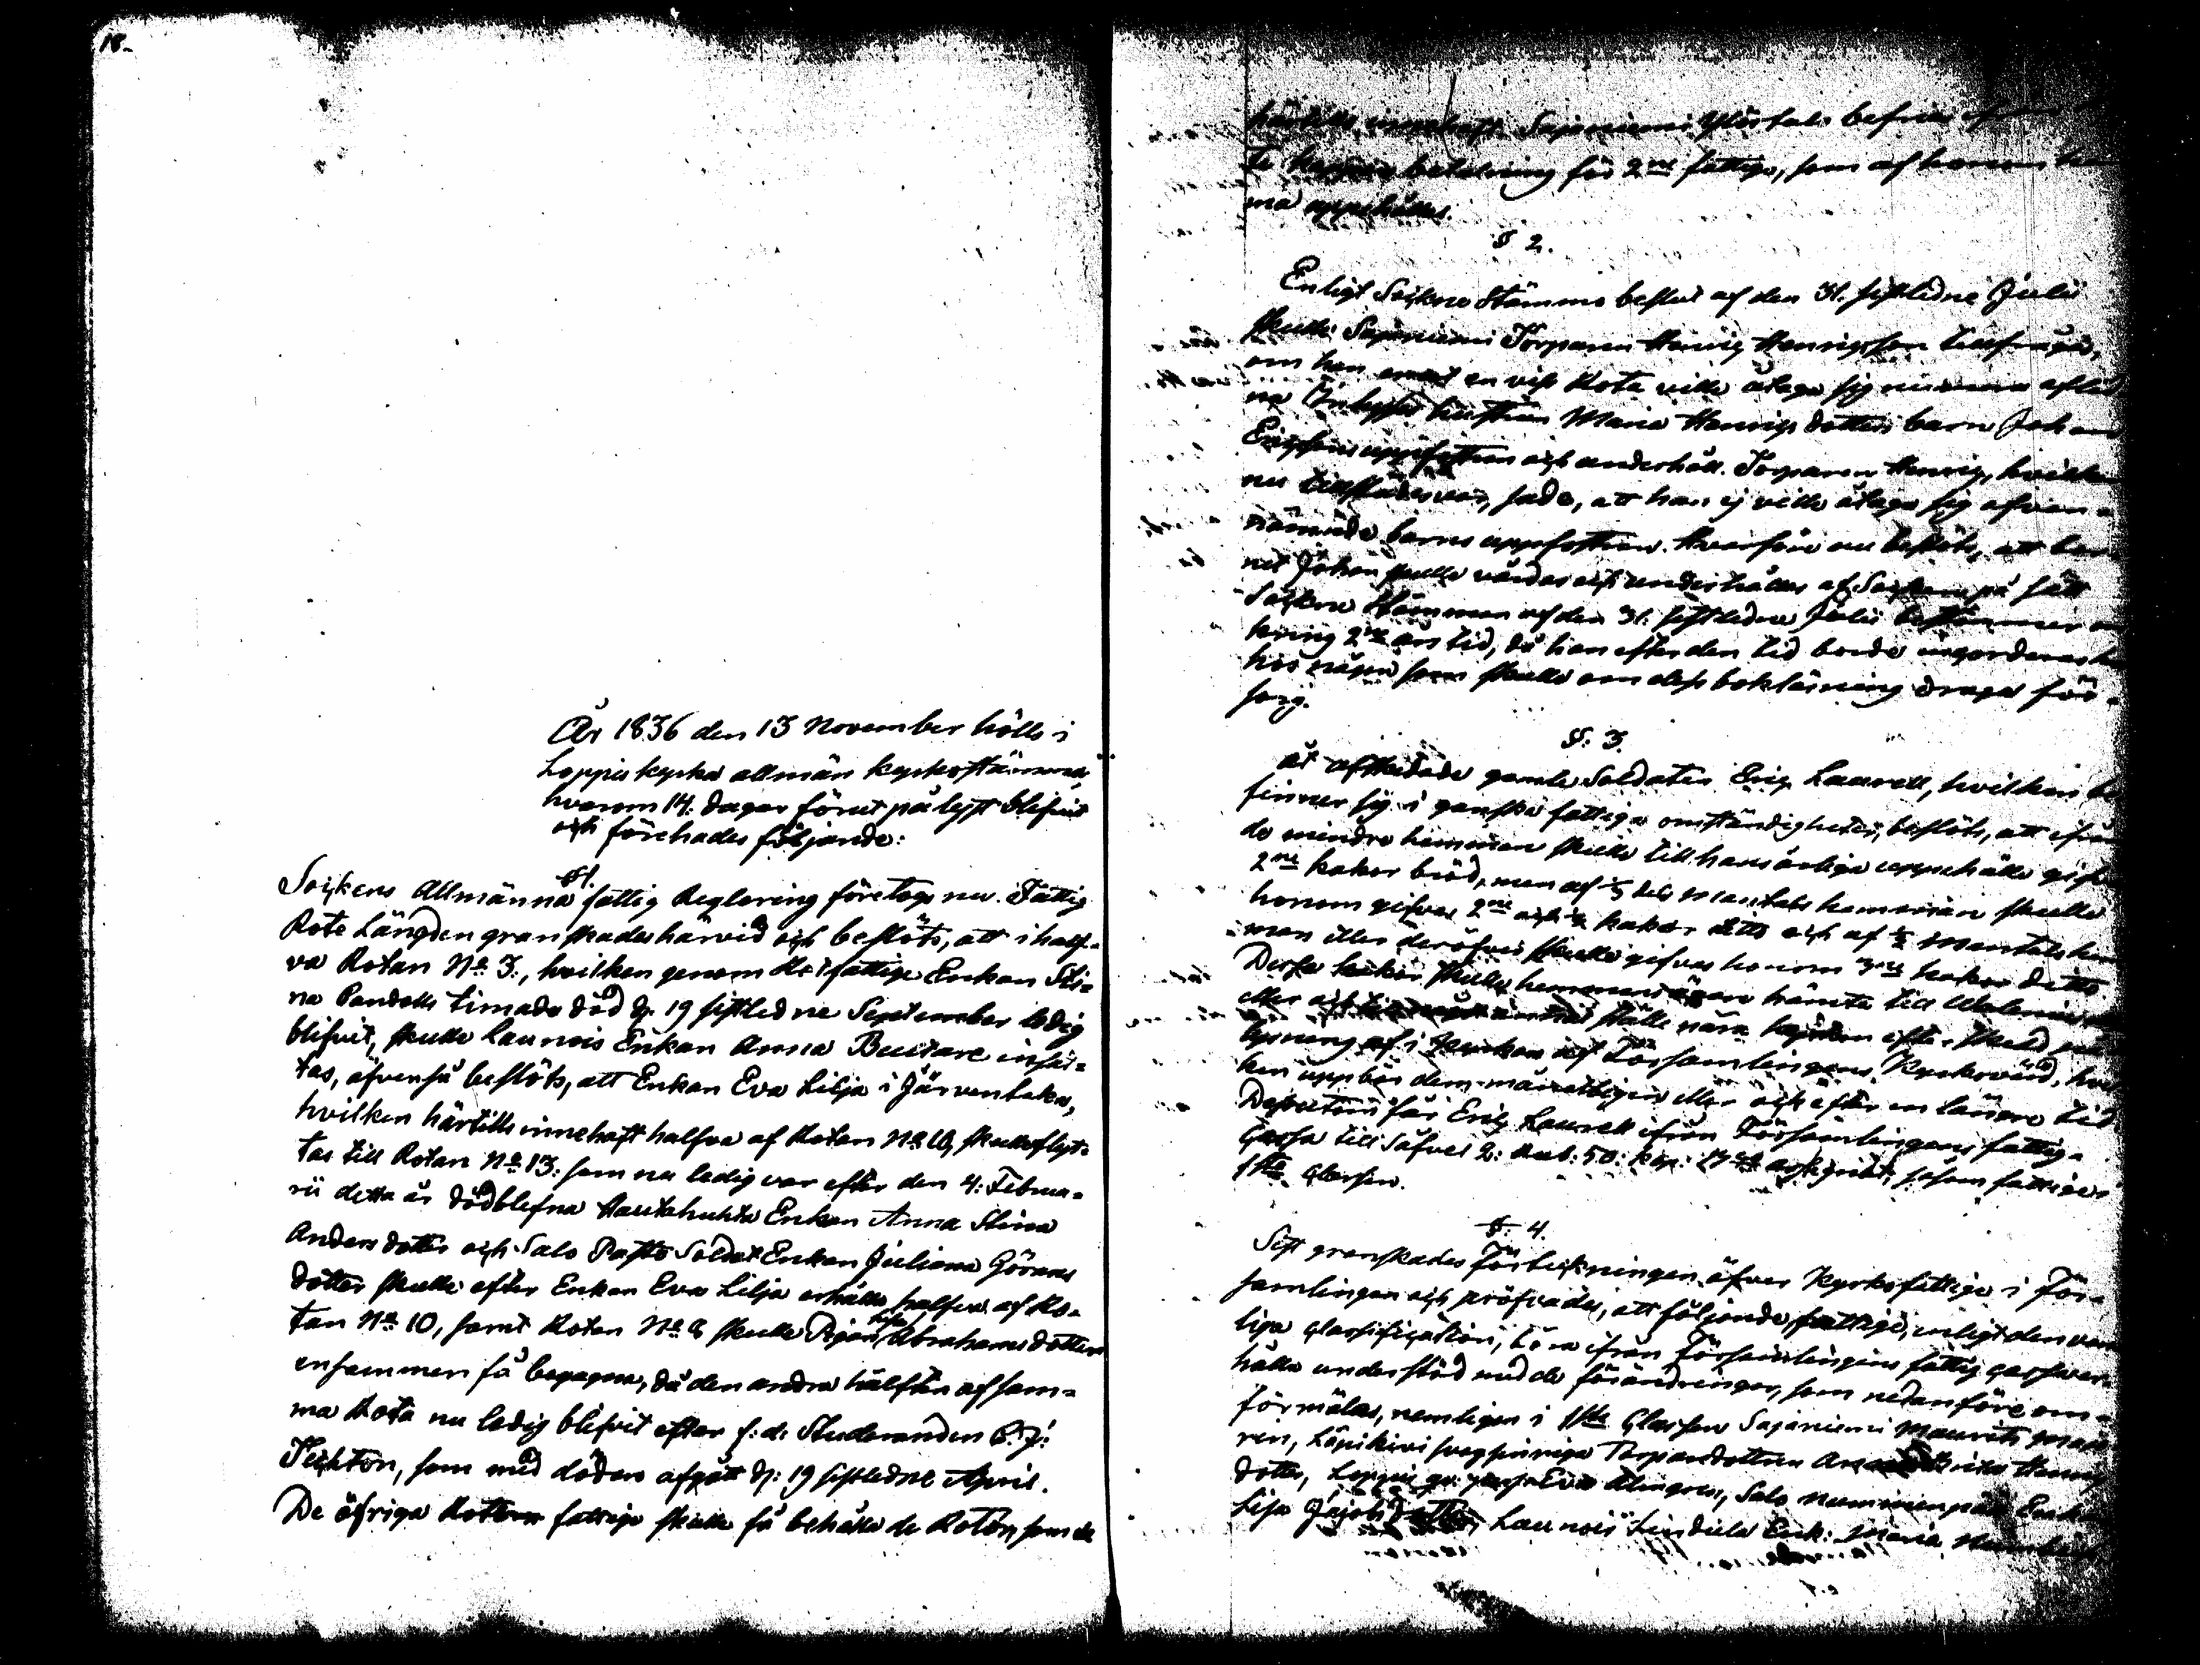 18.
År 1836 den 13 November hölls i
Loppis kyrka allmän kyrkostämma,
hvarom 14. dagar förut pålyst blifvit
och förehades följande:
§1.
Sockens Allmänna fattig Reglering företogs nu. Fattig
Rote Längden granskades härvid och beslöts, att i half-
va Rotan No 3., hvilken genom Rotfattige Enkan Sti-
na Pandolls timade död d. 19 sistledne September ledig
blifvit, skulle Launois Enkan Anna Bustare insät-
tas, äfvenså beslöts, att Enkan Eva Lilja i Järventaka,
hvilken härtills innehaft halfva af Rotan No 10, skulle flyt-
tas till Rotan No 13: som nu ledig var efter den 4: Februa-
rii detta år dödblefna Hautahuhta Enkan Anna Stina
Anders dotter och Salo Soldat Enkan Juliana Görans
dotter skulle efter Enkan Eva Lilja erhålla halfva af Ro-
tan No 10, samt Rotan No 8 skulle Pigan Abrahams dotter
ensammen få begagna, då den andra hälften af sam-
ma Rota nu ledig blifvit efter f: d: Studeranden C. J:
Techton, som med döden afgått d: 19 sistledne April.
De öfriga fattige skulle få behålla de Rotor, som de
härtills innehaft. Sajaniemi
betalning för 2ne fattige, som af honom
ma uppehålles.
§ 2.
Enligt Sockne Stämmo beslut af den 31. sistledne Julii
skulle Sajaniemi Torparen Henric Henricsson tillfrågas,
om han emot en viss Rota ville åtaga sig numera aflid
na Inhyses hustrun Maria Henrics dotters barn Johan
Ericssons uppfostran och underhåll. Torparen Henric, hvilken
nu tillstädes var, sade, att han ej ville åtaga sig ofvan-
nämnde barns uppfostran. Hvarföre nu beslöts, att bar-
net Johan skulle vårdas och underhållas af Socknen på sätt
Sockne Stämman af den 31. sistledne Julii bestämmer om
kring 2ne års tid, då han efter den tid borde
hos någon som skulle om dess boklärning draga för-
sorg.
§. 3.
Åt afskedade gamle Soldaten Eric Laurell, hvilken be
finner sig i ganska fattiga omständigheter, beslöts, att ifrån
de mindre hemman skulle till hans årliga uppehälle gifvas
2ne kakor bröd, men af dels Mantals hemman skulle
honom gifvas 2ne och ½ kakor ditto och af ½ Mantals hem
man eller deröfver skulle gifvas honom 3ne kakor ditto
Dessa kakor skulle hemmansägare hämta till
eller ställe nära kyrkan efter skedd på
lysning i Kyrkan af Församlingens Kyrkovärd, hvil
ken uppbär dem eller och efter en längre tid
Dessutom får Eric Laurell ifrån Församlingens fattig-
Cassa till Såfvel 2: Rub: 50: kop: såsom fattige i
1sta Classen.
§: 4.
Sist granskades Förteckningen öfver Kyrkofattige i För-
samlingen och pröfvades, att följande fattige, enligt den van
liga Classification, böra ifrån Församlingens fattig cassa er-
hålla understöd med de förändringar, som nedanföre om-
förmälas, nemligen i 1sta Classen Sajaniemi
ren, Löpikivi svagsinniga Torparedottren Henrics
dotter, Loppis Eva Almgren, Salo
Lisa Jacobs dotter, Launois Enk: Maria